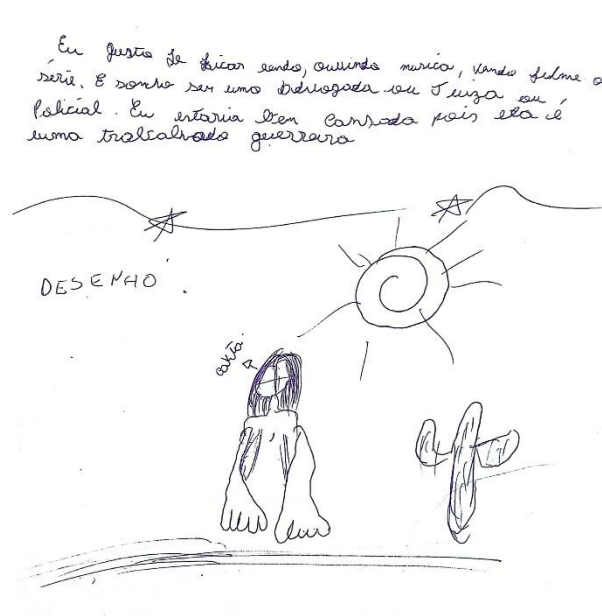 Eu gusto de ficar lendo, ouvindo musica, vendo filme o
série. E sonho ser uma Advogada ou Juiza ou
Policial. Eu estaria bem Cansada pois ela é
uma trabalhado guerreira
DESENHO.